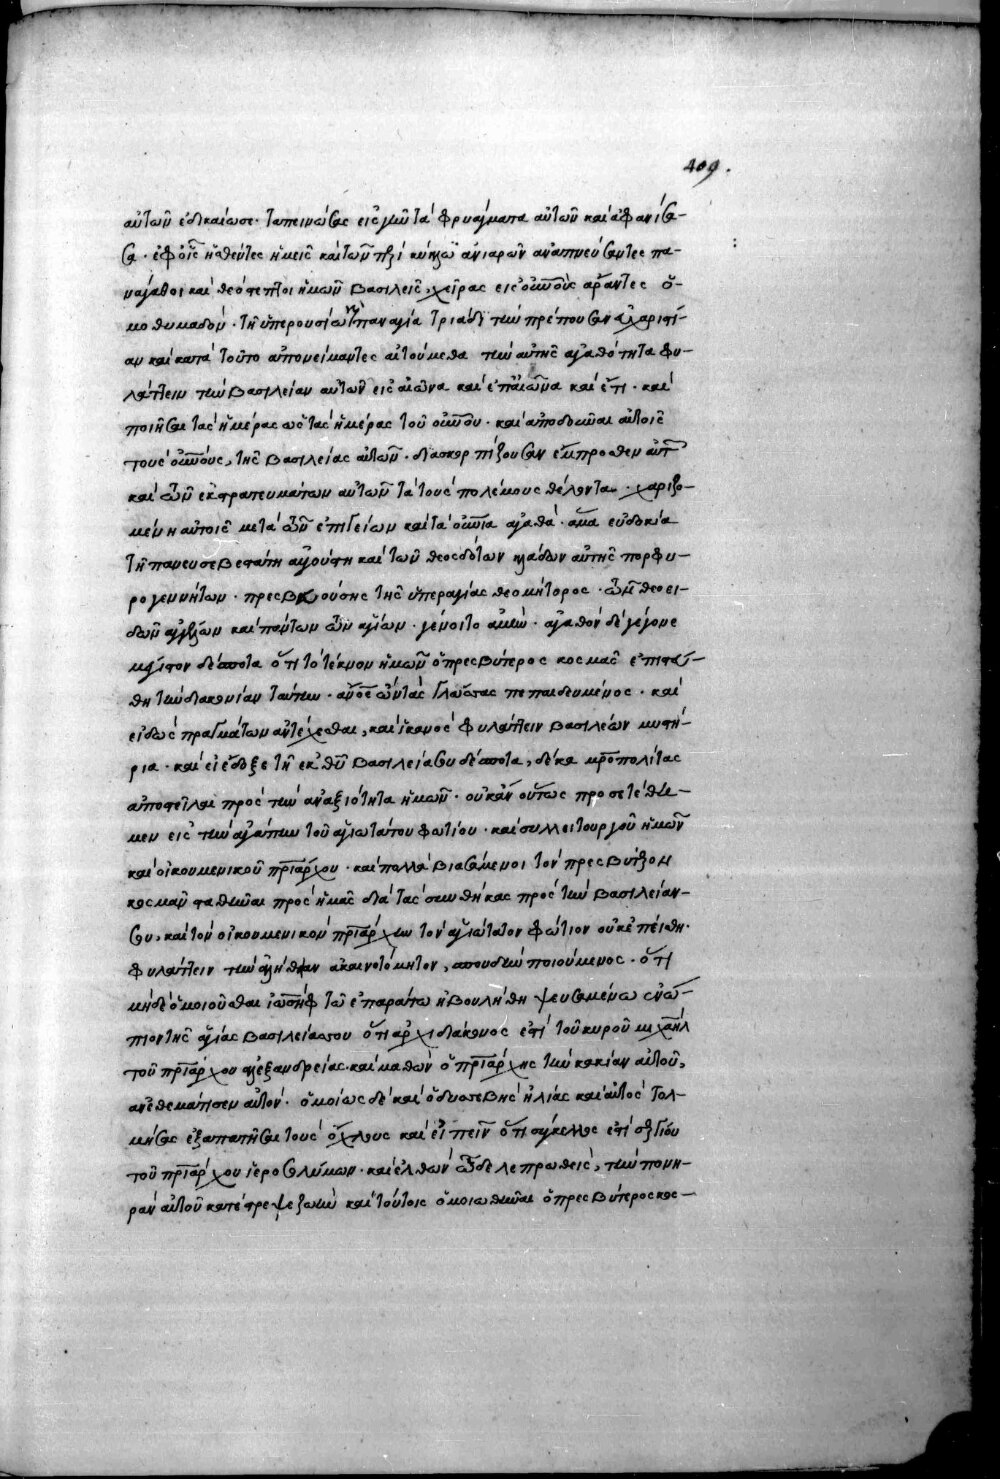 409.
αὐτῶν ἐδικαίωσε· ταπεινώσας εἰς γῆν τὰ φρυάγματα αὐτῶν καὶ ἀφανίσα-
σα· ἐφ οἷς ἡσθέντες ἡμεῖς καὶ τῶν κύκλω ἀνιαρῶν ἀναπνεύσαντες πα-
νάγαθοι καὶ θεόσεπτοι ἡμῶν βασιλεῖς, χεῖρας εἰς οὐνοὺς ἄραντες ὁ-
μοθυμαδόν· τῆ ὑπερουσίω καὶ παναγία τριάδι τὴν πρέπουσαν εὐχαριστί-
αν κατὰ τοῦτο ἀπονείμαντες αἰτούμεθα τὴν αὐτῆς ἀγαθότητα φυ-
λάττειν τὴν βασιλείαν αὐτῶν εἰς αἰῶνα καὶ ἐπ αἰῶνα καὶ ἔτι· καὶ
ποιῆσαι τὰς ἡμέρας ὡς τὰς ἡμέρας τοῦ οὐνου· καὶ ἀποδοῦναι αὐτοῖς
τοὺς οὐνούς, τῆς βασιλείας αὐτῶν· διασκορπίζουσαν ἔμπροσθεν αὐτ
καὶ τῶν ἐκστρατευμάτων αὐτῶν τὰ τοὺς πολέμους θέλοντα· χαριζο-
μένη αὐτοῖς μετὰ τῶν ἐπιγείων καὶ τὰ οὐνια ἀγαθά· ἅμα εὐδοκία
τῆ πανευσεβεστάτη αὐγούστη καὶ τῶν θεοσδότων κλάδων αὐτῆς πορφυ-
ρογεννήτων· πρεσβευούσης τῆς ὑπεραγίας θεομήτορος· τῶν θεοει-
δῶν ἀγγέλων καὶ πάντων τῶν ἁγίων· γένοιτο ἀμήν· ἀγαθὸν δὲ γέγονε
μέγιστον δέσποτα ὅτι τὸ τέκνον ἡμῶν ὁ πρεσβύτερος κοσμᾶς ἐπιστεύ-
θη τὴν διακονίαν ταύτην· ἀνος ὢν τὰς γλώσσας πεπαιδευμένος· καὶ
εἰδὼς πραγμάτων ἀντέχεσθαι, καὶ ἱκανὸς φυλάττειν βασιλέων μυστή-
ρια· καὶ εἰ ἔδοξε τῆ ἐκ θῦ βασιλεία σου δέσποτα, δέκα μροπολίτας
ἀποστεῖλαι πρὸς τὴν ἀναξιότητα ἡμῶν· οὐκ ἂν οὕτως προσετέθη-
μεν εἰς τὴν ἀγάπην τοῦ ἁγιωτάτου φωτίου· καὶ συλλειτουργοῦ ἡμῶν
καὶ οἰκουμενικοῦ πριάρχου· καὶ πολλὰ βιασάμενοι τὸν πρεσβύτερον
κοσμᾶν σταθῆναι πρὸς ἡμᾶς διὰ τὰς συνθήκας πρὸς τὴν βασιλείαν
σου, καὶ τὸν οἰκουμενικὸν πριάρχην τὸν ἁγιώτατον φώτιον οὐκ ἐπείσθη·
φυλάττειν τὴν ἀλήθειαν ἀκαινοτόμητον, σπουδὴν ποιούμενος· ὅτι
μηδὲ ὁμοιοῦσθαι ἰωσὴφ τῶ ἐπαράτω ἠβουλήθη ψευσαμένω ἐνώ-
πιον τῆς ἁγίας βασιλείας σου ὅτι ἀρχιδιάκονος ἐστὶ τοῦ κυροῦ μιχαὴλ
τοῦ πριάρχου ἀλεξανδρείας· καὶ μαθὼν ὁ πριάρχης τὴν κακίαν αὐτοῦ,
ἀνεθεμάτισεν αὐτόν· ὁμοίως δὲ καὶ ὁ δυσσεβὴς ἠλίας καὶ αὐτὸς τολ-
μήσας ἐξαπατῆσαι τοὺς ὄχλους καὶ εἰπεῖν ὅτι σύγκελλος ἐστὶ
τοῦ πριάρχου ἱεροσολύμων· καὶ ἐλθὼν ὧδε λεπρωθεὶς, τὴν πονη-
ρὰν αὐτοῦ κατέστρεψε ζωὴν καὶ τούτοις ὁμοιωθῆναι ὁ πρεσβύτερος κοσ-